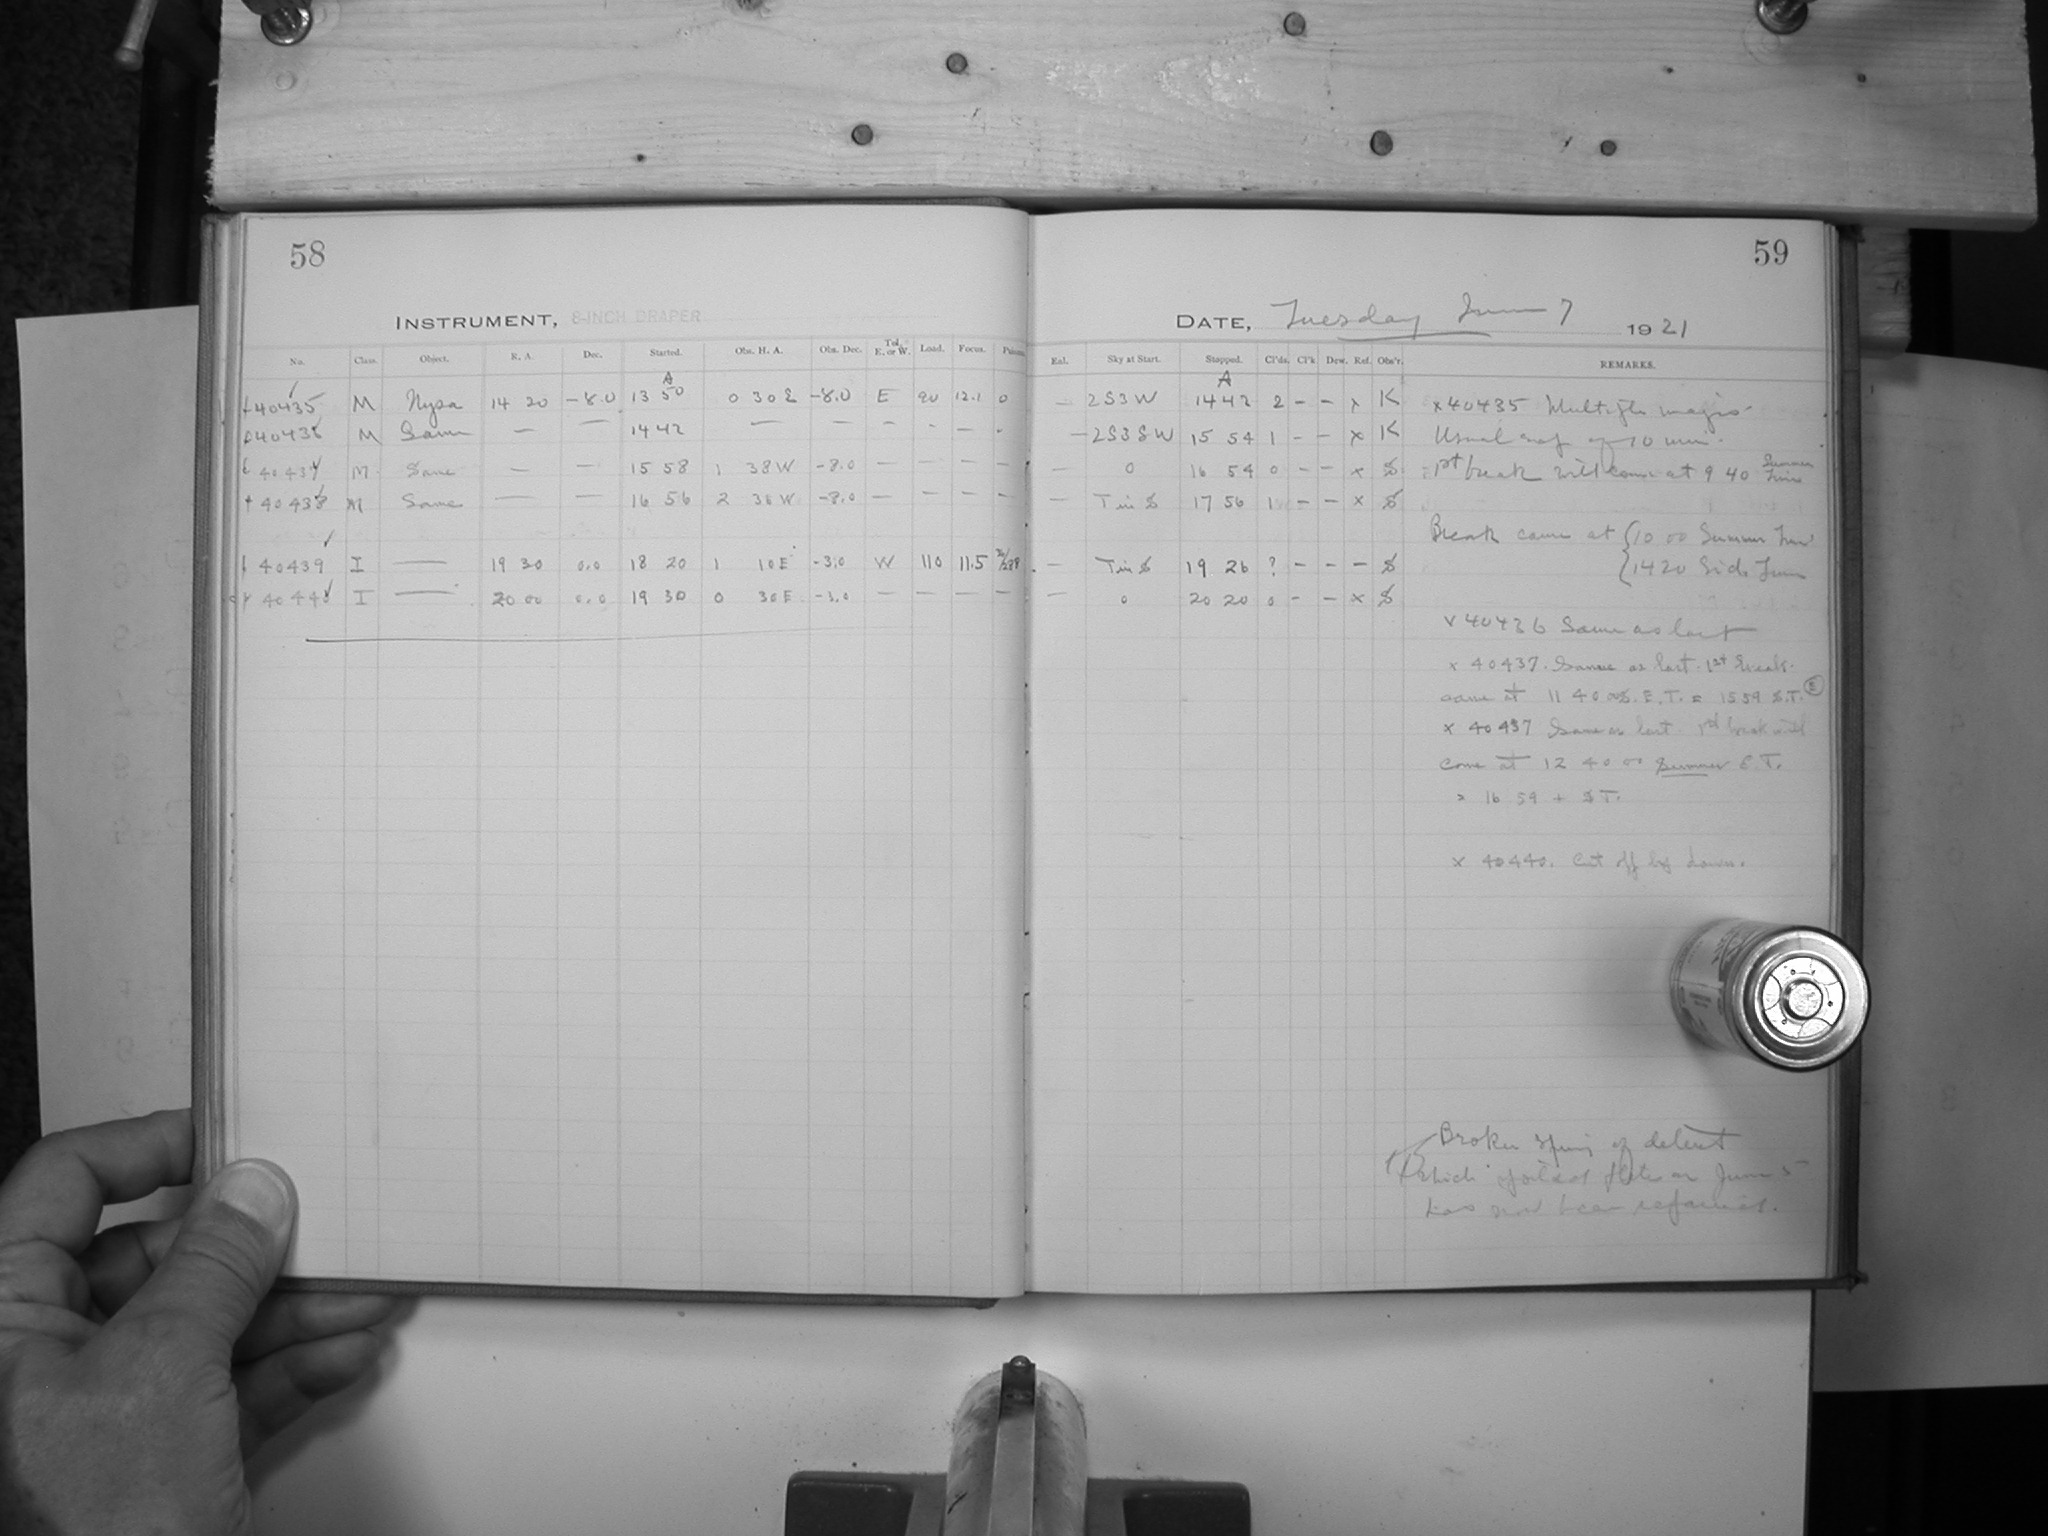 58
INSTRUMENT, 8-INCH DRAPER
No. Class. Object. R. A. Dec. Started. Obs. H. A. Obs. Dec. Tel. E. or W. Load. Focus.
A
40435 M Nysa 14 20 -8.0 13 50 0 30 E -8.0 E 90 12.1 0
40436 M Same — — 14 42 — — — - - -
40437 M Same — — 15 58 1 38 W -8.0 — — — —
40438 M Same — — 16 56 2 36 W -8.0 — — — —
40439 I — 19 30 0.0 18 20 1 10 E -3.0 W 110 11.5
40440 I — 20 00 0.0 19 30 0 30 E -3.0 — — — —
59
DATE, Tuesday June 7 1921
Sky at Start. Stopped. Cl'ds. Cl'k Dew. Ref. Obs'r. REMARKS.
A
— 2S3W 14 42 2 - - x K
— 2S3SW 15 54 1 - - x K
— 0 16 54 0 - - x S
— T in S 17 56 1 - - x S
— T in S 19 26 ? - - - S
— 0 20 20 0 - - x S
x 40435 Multiple
Usual 10 min.
1st break will come at 9 40 Summer Time
Break came at 10 00 Summer Time
14 20 Sid. Time
x 40436 Same as last
x 40437. Same as last. 1st break
came at 11 40 00 S. E. T. = 1559 S.T. E
x 40437 Same as last 1st break will
come at 12 40 00 Summer E.T.
= 16 59 + S T.
x 40440. Cut off by dawn.
Broken spring of detent
which spoiled plates on June 5
has now been repaired.